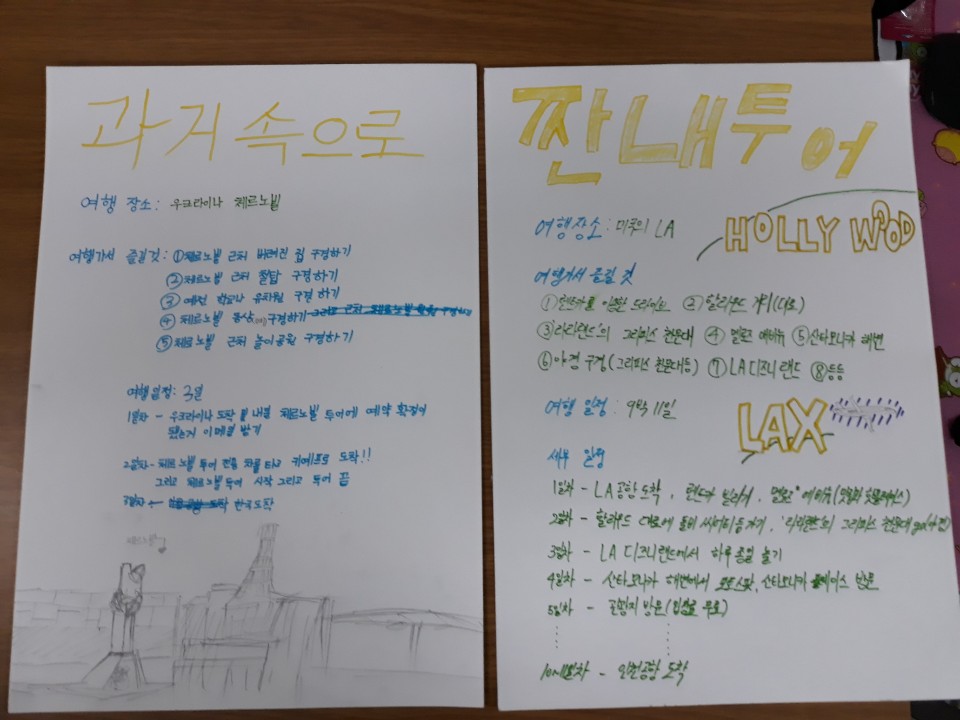 과거 속으로
여행 장소: 우크라이나 체르노빌
여행가서 즐길것: ①체르노빌 근처 버려진 집 구경하기
②체르노빌 근처 활답 구경하기
③ 예전 학교나 유치원 구경 하기
④ 체르노빌 동상 구경하기
⑤체르노빌 근처 놀이공원 구경하기
여행일정: 3일
1일차 - 우크라이나 도착 및 내일 체르노빌 투어에 예약 확정이
됐는거 이메일 받기
2일차 - 체르노빌 투어 전용 차를 타고 키예프로 도착!!
그리고 체르노빌 투어 시작 그리고 투어 끝
3일차 - 한국 도착
짠내투어
여행장소: 미국의 LA
HOLLYWOOD
여행가서 즐길 것
①렌트카를 이용한 드라이브 ②할리우드 거리(대로)
③라라랜드'의 그리피스 천문대 ④ 멜로즈 에비뉴 ⑤산타모니카 해변
⑥야경 구경(그리피스 천문대등) ⑦LA디즈니랜드 ⑧등등
여행 일정 : 9박 11일
LAX
세부 일정
1일차 - LA공항 도착, 렌터카 빌리기, 멜로즈 에비뉴
2일차 - 할리우드 대로에 돌비 씨어터등 가기, '라라랜드'의 그리피스 천문대 go
3일차 - LA 디즈니랜드에서 하루 종일 놀기
4일차 - 산타모니카 해변에서 포토스팟, 산타모니카 플레이스 방문
5일차 - 방문(입장료 무료)
10~11일차 - 인천공항 도착